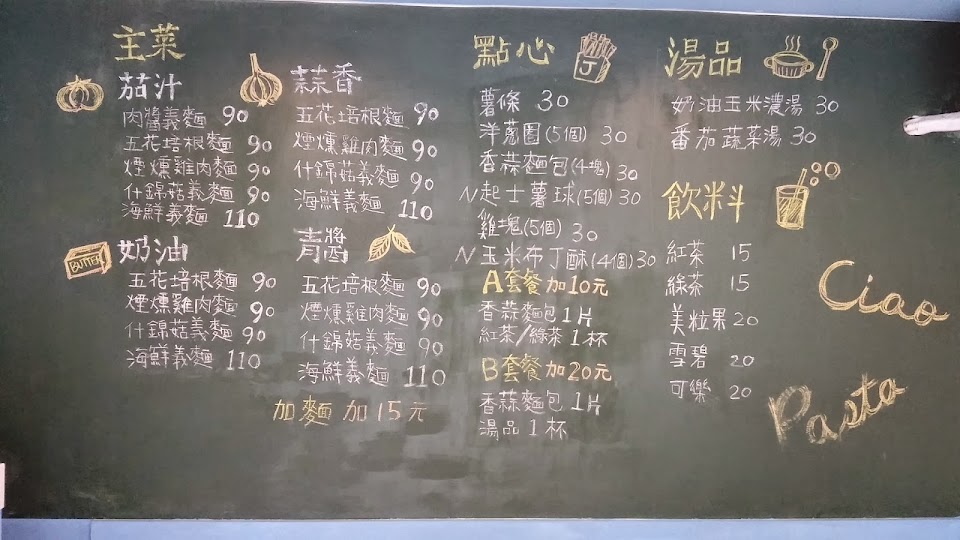 主菜
茄汁
肉醬義麵 90
五花培根麵 90
煙燻雞肉麵 90
什錦菇義麵 90
海鮮義麵 110
蒜香
五花培根麵 90
煙燻雞肉麵 90
什錦菇義麵 90
海鮮義麵 110
BUTTER
奶油
五花培根麵 90
煙燻雞肉麵 90
什錦菇義麵 90
海鮮義麵 110
青醬
五花培根麵 90
煙燻雞肉麵 90
什錦菇義麵 90
海鮮義麵 110
加麵加15元
點心
J
薯條 30
洋蔥圈(5個) 30
香蒜麵包(4塊) 30
N起士薯球(5個) 30
雞塊(5個) 30
N玉米布丁酥(4個) 30
A套餐加10元
香蒜麵包1片
紅茶/綠茶1杯
B套餐加20元
香蒜麵包1片
湯品1杯
湯品
奶油玉米濃湯 30
番茄蔬菜湯 30
飲料
紅茶 15
綠茶 15
美粒果 20
雪碧 20
可樂 20
Ciao
Pasta